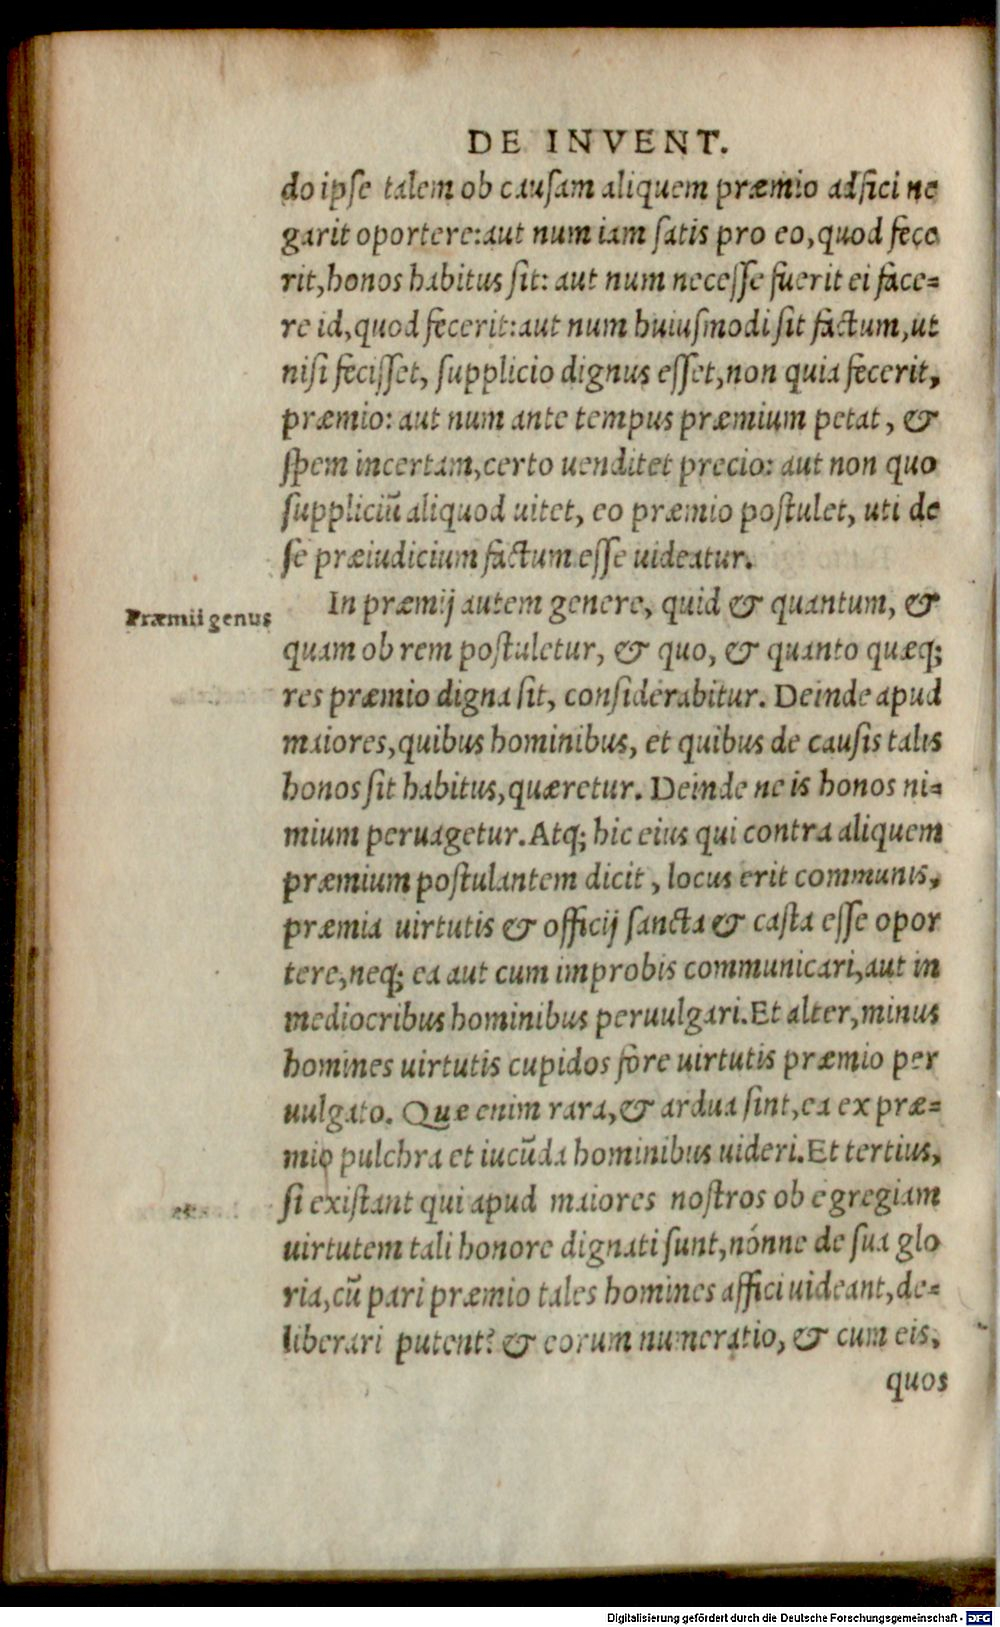 DE INVENT.
do ipse talem ob causam aliquem præmio adfici ne
garit oportere: aut num iam satis pro eo, quod fece
rit, honos habitus sit: aut num necesse fuerit ei face=
re id, quod fecerit: aut num huiusmodi sit factum, ut
nisi fecisset, supplicio dignus esset, non quia fecerit,
præmio: aut num ante tempus præmium petat, &
spem incertam, certo uenditet precio: aut non quo
suppliciū aliquod uitet, eo præmio postulet, uti de
se præiudicium factum esse uideatur.
Præmii genus
In præmij autem genere, quid & quantum, &
quam ob rem postuletur, & quo, & quanto quæq;
res præmio digna sit, considerabitur. Deinde apud
maiores, quibus hominibus, et quibus de causis talis
honos sit habitus, quæretur. Deinde ne is honos ni=
mium peruagetur. Atq; hic eius qui contra aliquem
præmium postulantem dicit, locus erit communis,
præmia uirtutis & officij sancta & casta esse opor
tere, neq; ea aut cum improbis communicari, aut in
mediocribus hominibus peruulgari. Et alter, minus
homines uirtutis cupidos fore uirtutis præmio per
uulgato. Quæ enim rara, & ardua sint, ea ex præ=
mio pulchra et iucūda hominibus uideri. Et tertius,
si existant qui apud maiores nostros ob egregiam
uirtutem tali honore dignati sunt, nónne de sua glo
ria, cū pari præmio tales homines affici uideant, de=
liberari putent? & eorum numeratio, & cum eis,
quos
Digitalisierung gefördert durch die Deutsche Forschungsgemeinschaft - DFG